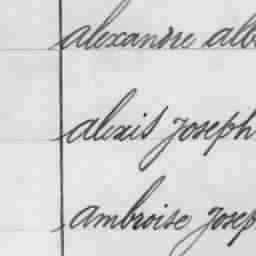 alexandre alb
alexis joseph
ambroise josep